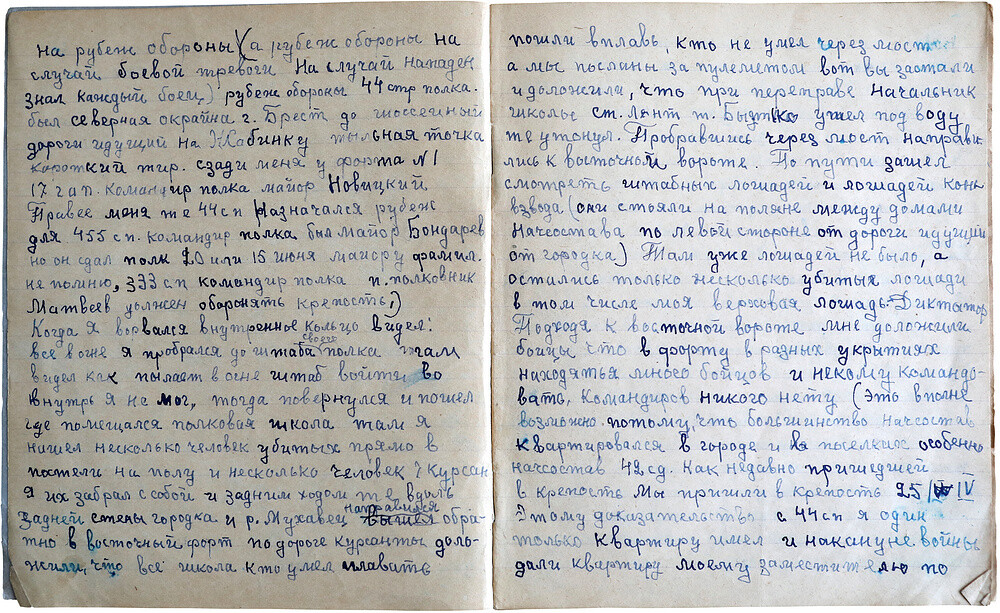 на рубеж обороны (а рубеж обороны на
случай боевой тревоги На случай нападен
знал каждый боец) рубеж обороны 44 стр полка.
был северная окрайна г. Брест до шоссейный
дороги идущий на Жабинку тыльная точка
короткий тир. сзади меня у форта N1
17 гап. командир полка майор Новицкий
Правее меня же 44сп назначался рубеж
для 455 сп. командир полка был майор Бондарев
но он сдал полк 20 или 15 июня майору фамил.
не помню, 333 сп командир полка п. полковник
Матвеев должен оборонять крепость,)
Когда я ворвался внутренное кольцо видел:
все в огне я пробрался до штаба своего полка и там
видел как пылает в огне штаб войти во
внутрь я не мог, тогда повернулся и пошел
где помещался полковая школа там я
нашел несколько человек убитых прямо в
постели на полу и несколько человек 7 курсан
я их забрал с собой и задним ходом те вдоль
задней стены городка и р. Мухавец направился обра-
тно в восточный форт по дороге курсанты доло-
жили, что все школа кто умел плавать
пошли вплавь, кто не умел через мост
а мы посланы за пулеметом вот вы застали
и доложили, что при переправе начальник
школы ст. лент т. Бытко ушел под воду
те утонул. Пробравшись через мост направи-
лись к восточной вороте. По пути зашел
смотреть штабных лошадей и лошадей кон
взвода (они стояли на поляне между домами
начсостава по левой стороне от дороги идущий
от городка) Там уже лошадей не было, а
остались только несколько убитых лошади
в том числе моя верховая лошадь-Диктатор
Подходя к восточной вороте мне доложили
бойцы что в форту в разных укрытиях
находятья много бойцов и некому командо-
вать, командиров никого нету (Это вполне
возможно потому, что большинство начсостав
квартировался в городе и в поселких особенно
начсостав 42сд. как недавно пришедшей
в крепость Мы пришли в крепость 25/IV
Этому доказательство с 44сп я один
только квартиру имел и накануне войны
дали квартиру моему заместителю по